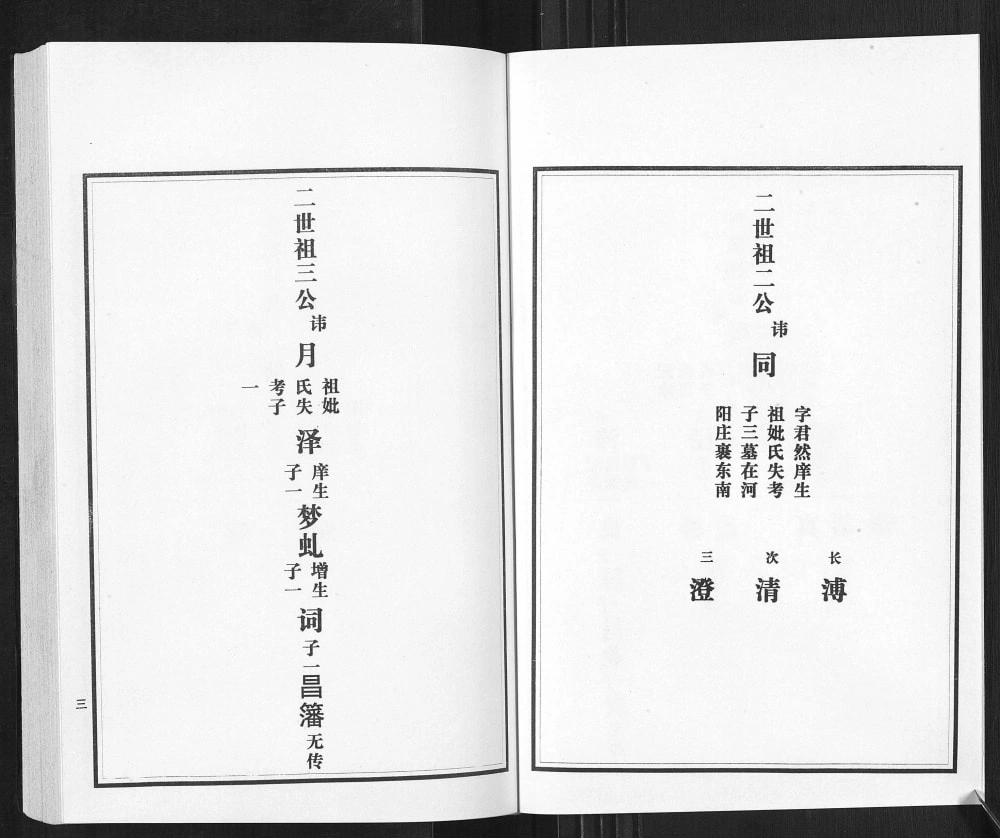 二世祖二公
讳
同
字君然庠生
祖妣氏失考
子三墓在河
阳庄裹东南
长
溥
次
清
三
澄
二世祖三公
讳
月
祖妣
氏失
考子
一
泽
庠生
子一
梦虬
增生
子一
词
子一
昌籓
无传
三